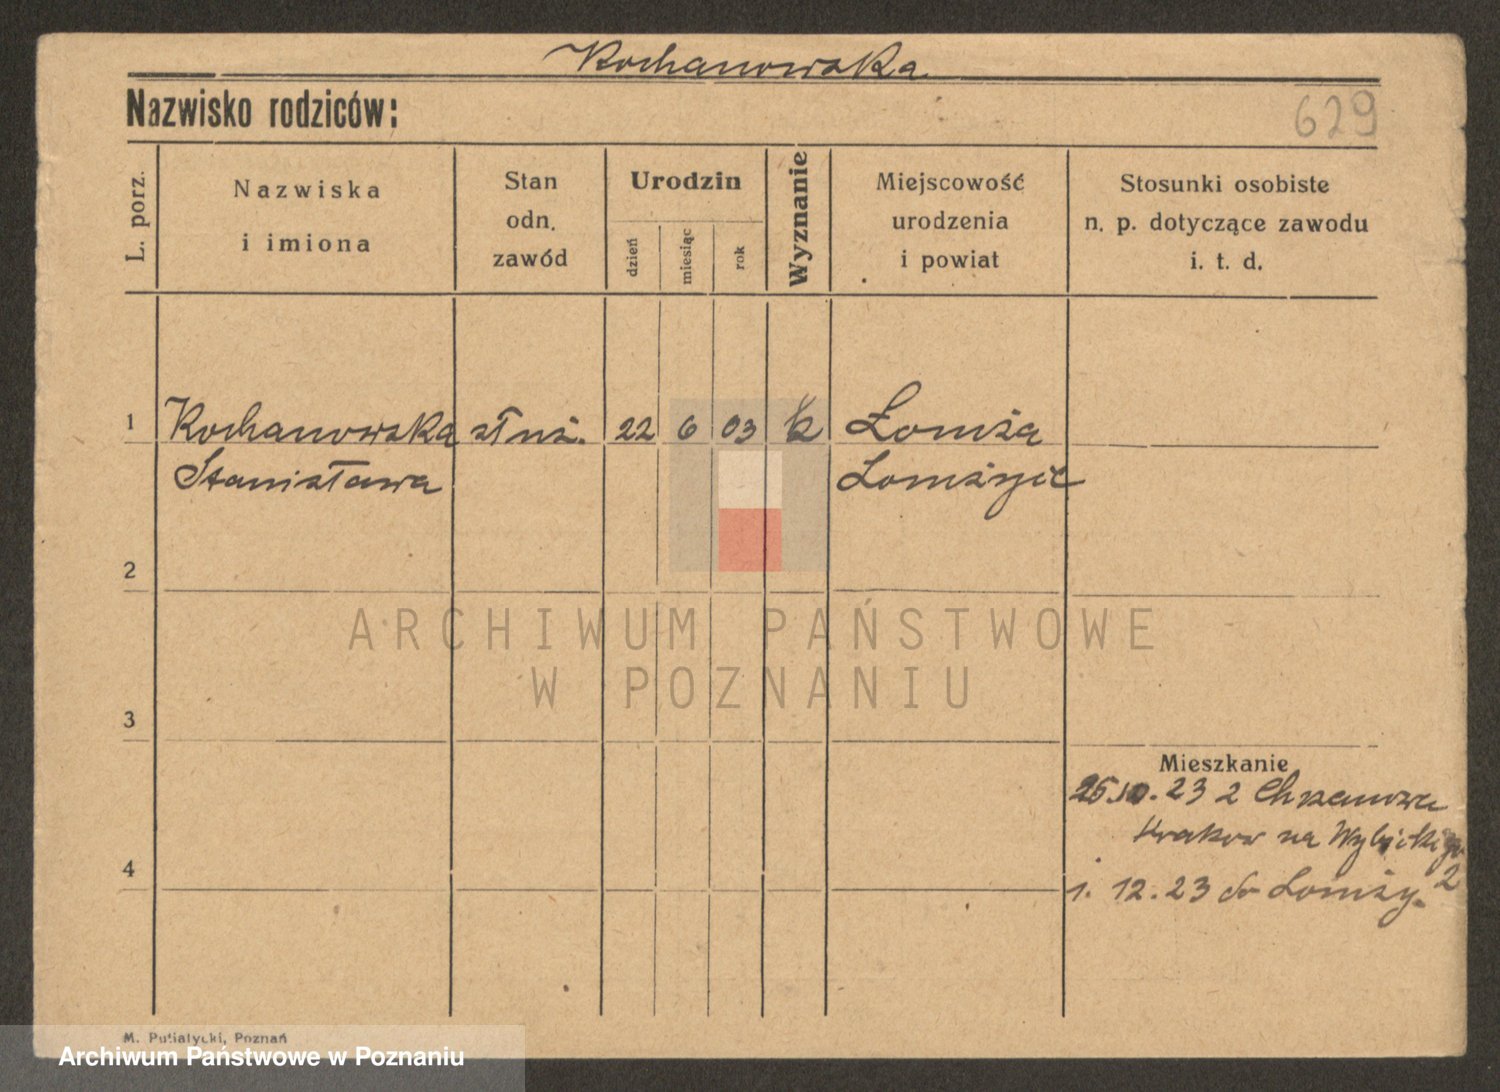 Kochanowska
Nazwisko rodziców:
629
L. porz.
Nazwiska
i imiona
Stan
odn.
zawód
Urodzin
dzień
miesiąc
rok
Wyznanie
Miejscowość
urodzenia
i powiat
Stosunki osobiste
n. p. dotyczące zawodu
i. t. d.
1 Kochanowska służ. 22 6 03 k Łomża
Stanisława Łomżyc
2
3
4
ARCHIWUM PAŃSTWOWE
W POZNANIU
Mieszkanie
25.10.23 z Chrzanowa
Krakow na Wybickiego
2
1. 12. 23 do Łomży.
M. Putiatycki, Poznań
Archiwum Państwowe w Poznaniu